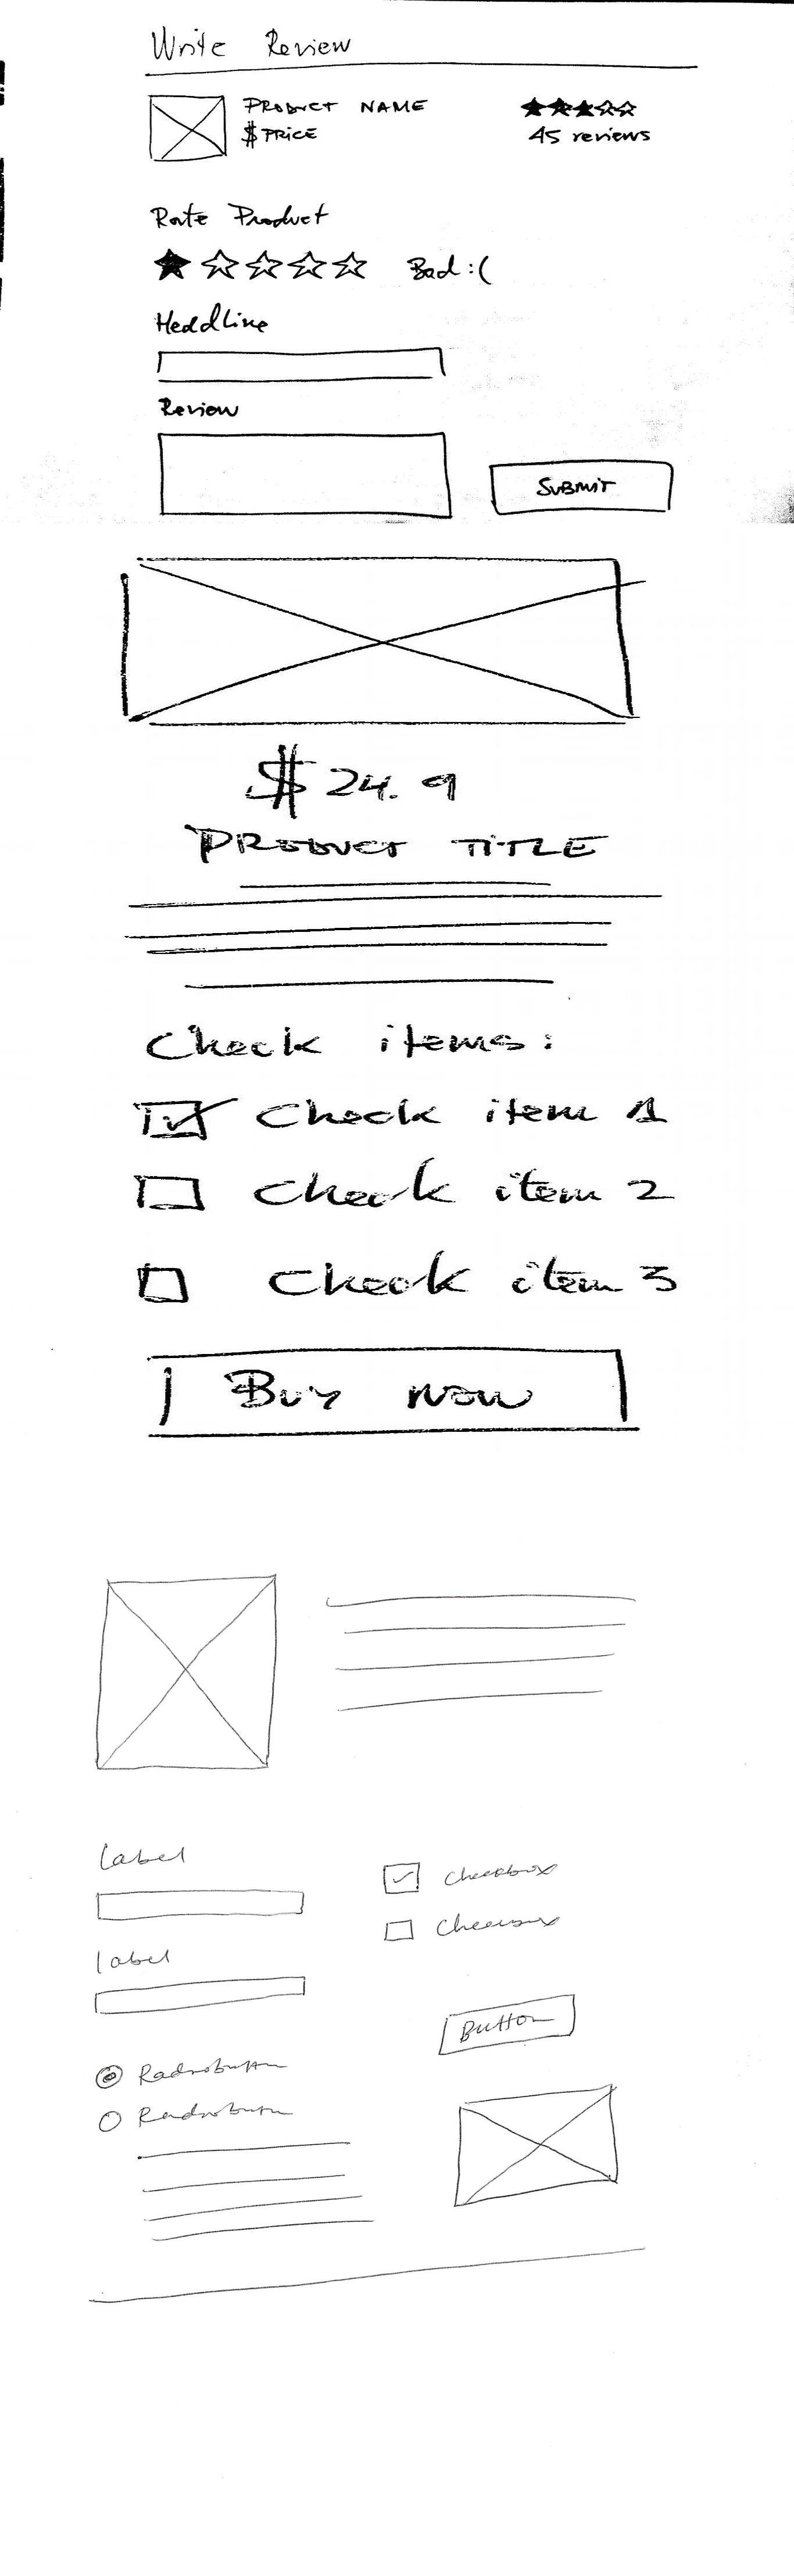 Write Review
PRODUCT NAME
$ PRICE
45 reviews
Rate Product
Bad :(
Headline
Review
SUBMIT
$ 24.9
PRODUCT TITLE
Check items:
Check item 1
Check item 2
Check item 3
Buy now
Label
Checkbox
Checkbox
label
Button
Radiobutton
Radiobutton